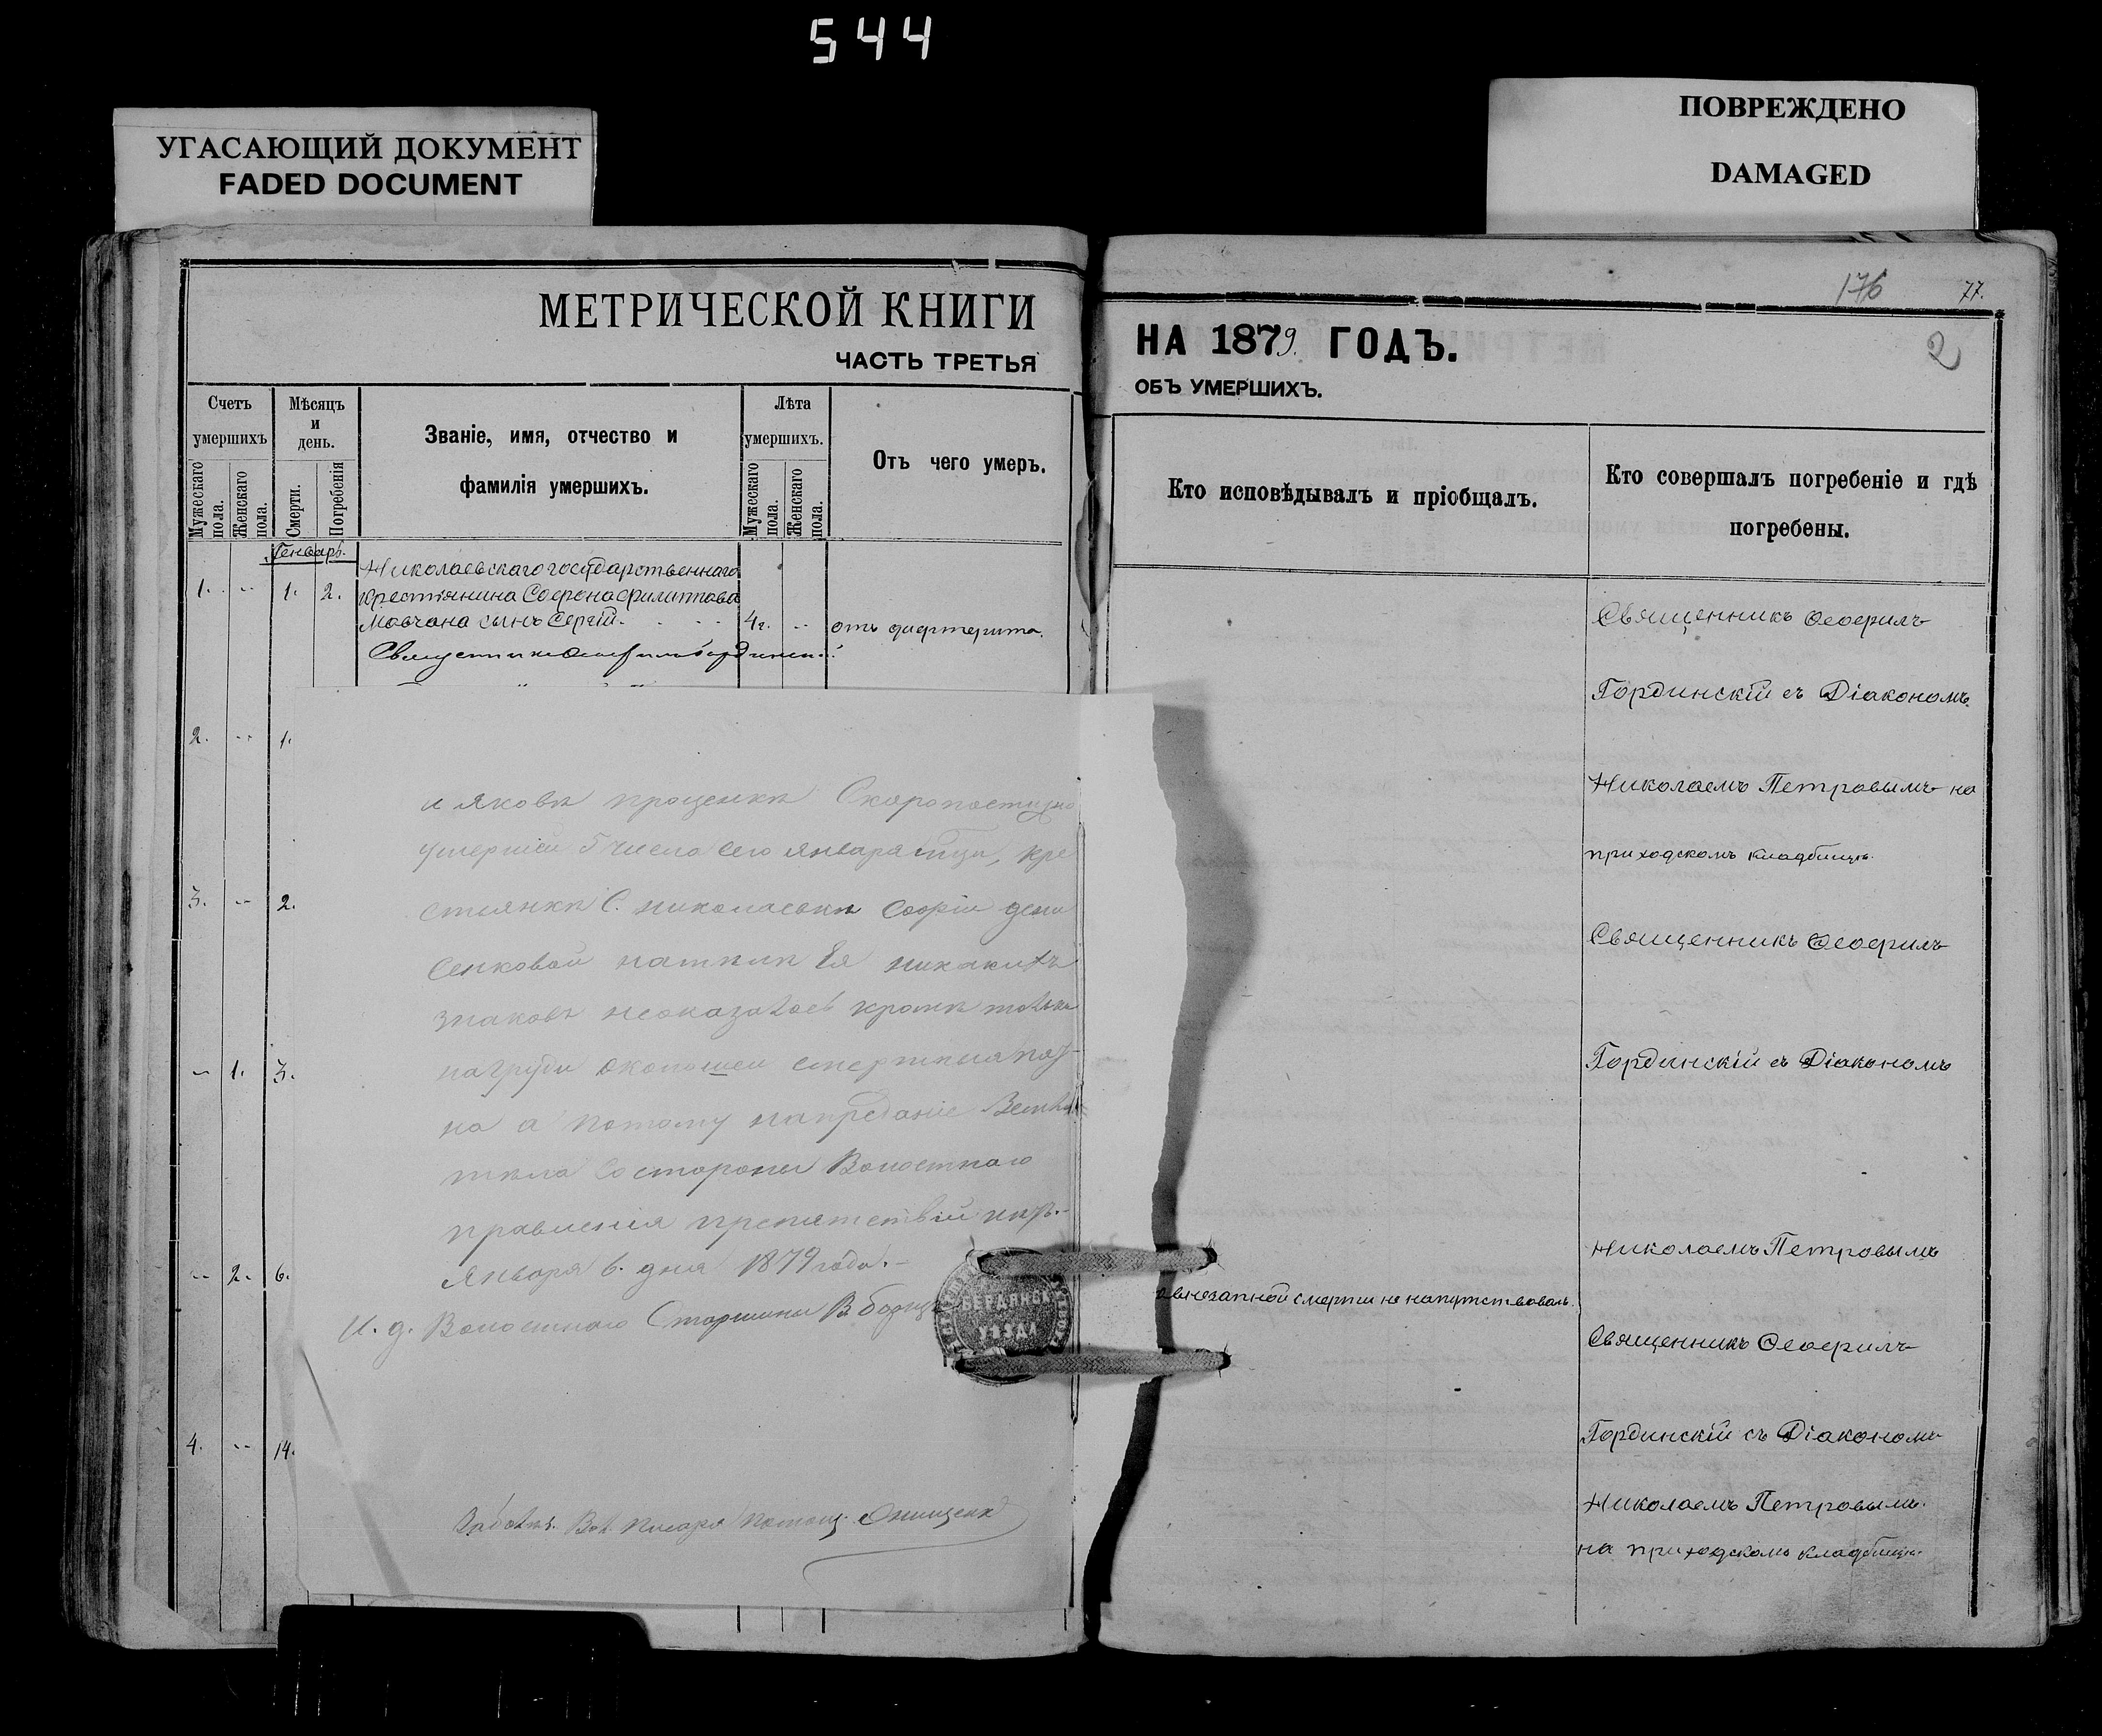 544
УГАСАЮЩИЙ ДОКУМЕНТ
FADED DOCUMENT
ПОВРЕЖДЕНО
DAMAGED
МЕТРИЧЕСКОЙ КНИГИ
ЧАСТЬ ТРЕТЬЯ
Счетъ умершихъ
Мужескаго пола.
Женскаго пола.
Мѣсяцъ и день.
Смерти.
Погребенія
Званіе, имя, отчество и
фамилія умершихъ.
Лѣта умершихъ.
Мужескаго пола.
Женскаго пола.
Отъ чего умеръ.
Генварь.
Николаевскаго государственнаго
1. -- 1. 2. крестьянина Софрона Филиппова
Мовчана сынъ Сергій. 4г. -- отъ дифтерита.
Священникъ Феофилъ Гординскій
2. -- 1.
3. -- 2.
-- 1. 3.
-- 2. 6.
4. -- 14.
и Якова проценка Скоропостижно
умершей 5 числа сего января, кре
стьянки С. николаевки Софіи дени
сенковой на ея никакихъ
знаковъ неоказалось кроме только
на груди
на а потому напреданіе Земли
тела Состороны Волостнаго
правления препятствій нетъ.-
Января 6. дня 1879 года.-
И. д. Волостнаго Старшины В.
БЕРДЯНСК
УѢЗДА
Вол. писаря помощ. Онищенк
176
77.
2
НА 1879. ГОДЪ.
ОБЪ УМЕРШИХЪ.
Кто исповѣдывалъ и пріобщалъ.
Кто совершалъ погребеніе и гдѣ
погребены.
Священникъ Феофилъ
Гординскій съ Діакономъ
Николаемъ Петровымъ на
приходскомъ кладбищѣ.
Священникъ Феофилъ
Гординскій съ Діакономъ
Николаемъ Петровымъ
внезапной смерти не напутствовалъ.
Священникъ Феофилъ
Гординскій съ Діакономъ
Николаемъ Петровымъ.
на приходскомъ кладбищѣ.